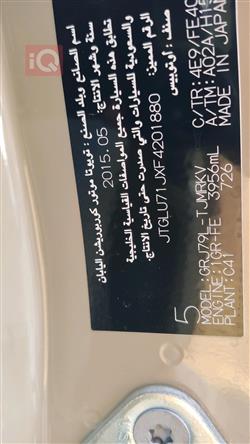 iQ
اسم الصانع وبلد الصنع : تويوتا موتور كوربوريشن اليابان
سنة وشهر الإنتاج: 2015. 05
تطابق هذه السيارة جميع المواصفات القياسية الخليجية
والسعودية للسيارات والتي صدرت حتى تاريخ الانتاج.
الرقم المميز: JTGLU71JXF4201880
صنف :
5
MODEL: GRJ79L-TJMRKV
ENGINE: 1GR-FE 3956mL
PLANT: C41 726
C/TR: 4E9/FE40
A/TM: A02A/H15
MADE IN JAPAN